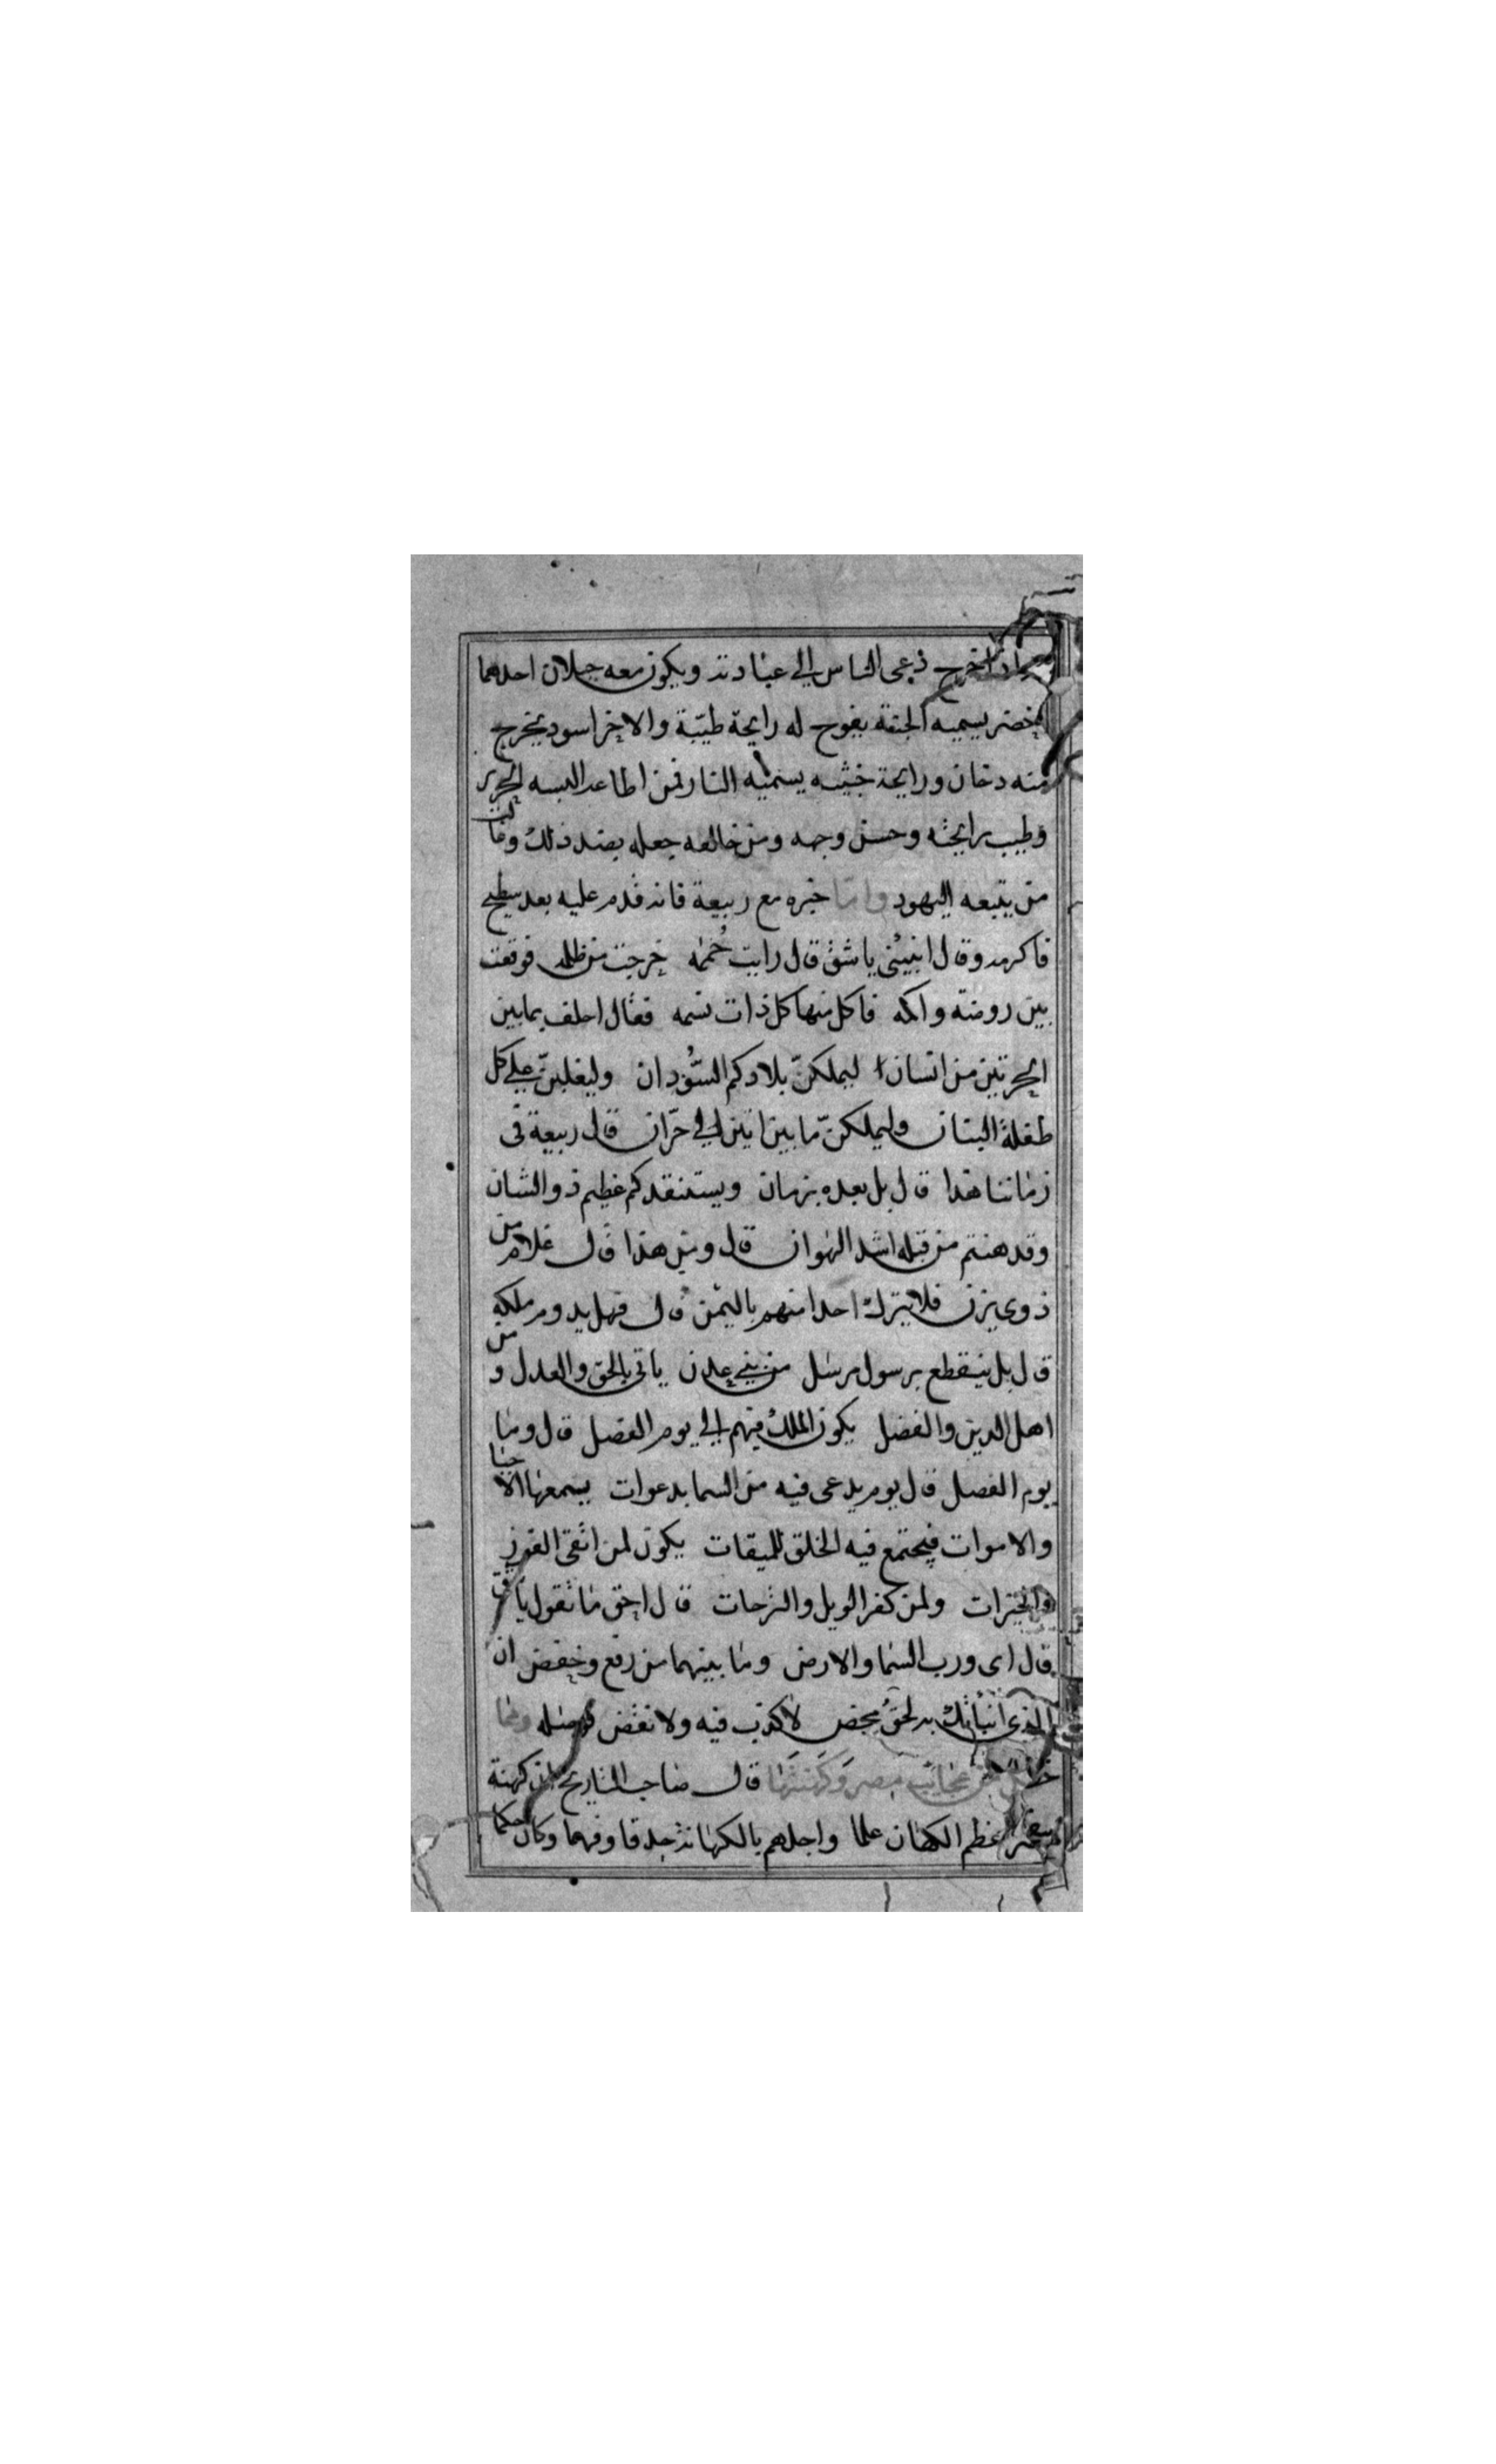 اذا خرج دعى الناس الي عبادته ويكون معه جبلان احدهما
اخضر يسميه الجنة يفوح له رايحة طيبة والاخر اسود يخرج
منه دخان ورايحة خبيثه يسميه النار فمن اطاعه البسه الحرير
وطيب رايحته وحسن وجهه ومن خالفه جعله بضد ذلك وغالب
من يتبعه اليهود واما خبره مع ربيعة فانه قدم عليه بعد سطيح
فاكرمه وقال انبيني يا شق قال رايت حُممه خرجت من ظلمه فوقعت
بين روضة واكمه فاكل منها كل ذات نسمه فقال احلف بما بين
الحرتين من انسان ليملكنّ بلادكم السُّودان وليغلبنّ علي كل
طفلة البنان وليملكنّ ما بين ابين الي حرّان قال ربيعة في
زماننا هذا قال بل بعده بزمان ويستنقدكم عظيم ذو الشان
وقد هنتم من قبله اشد الهوان قال ومن هذا قال غلام من
ذوي يزن فلا يترك احدا منهم باليمن قال فهل يدوم ملكه
قال بل ينقطع برسول مرسل من بني عدن ياتي بالحق والعدل و من
اهل الدين والفضل يكون الملك فيهم الي يوم الفصل قال وما
يوم الفصل قال يوم يدعى فيه من السما بدعوات يسمعها الاحيا
والاموات فيجتمع فيه الخلق للميقات يكون لمن اتقى الفوز
والخيرات ولمن كفر الويل والترحات قال احق ما تقول يا شق
قال اى ورب السما والارض وما بينهما من رفع وخفض ان
الذي انبأتك به لحق محض لا كذب فيه ولا نقض ومما
من عجائب مصر وكهنتها قال صاحب التاريخ ان كهنة
مصر اعظم الكهان علما واجلهم بالكهانة حدقا وفهما وكان حكما